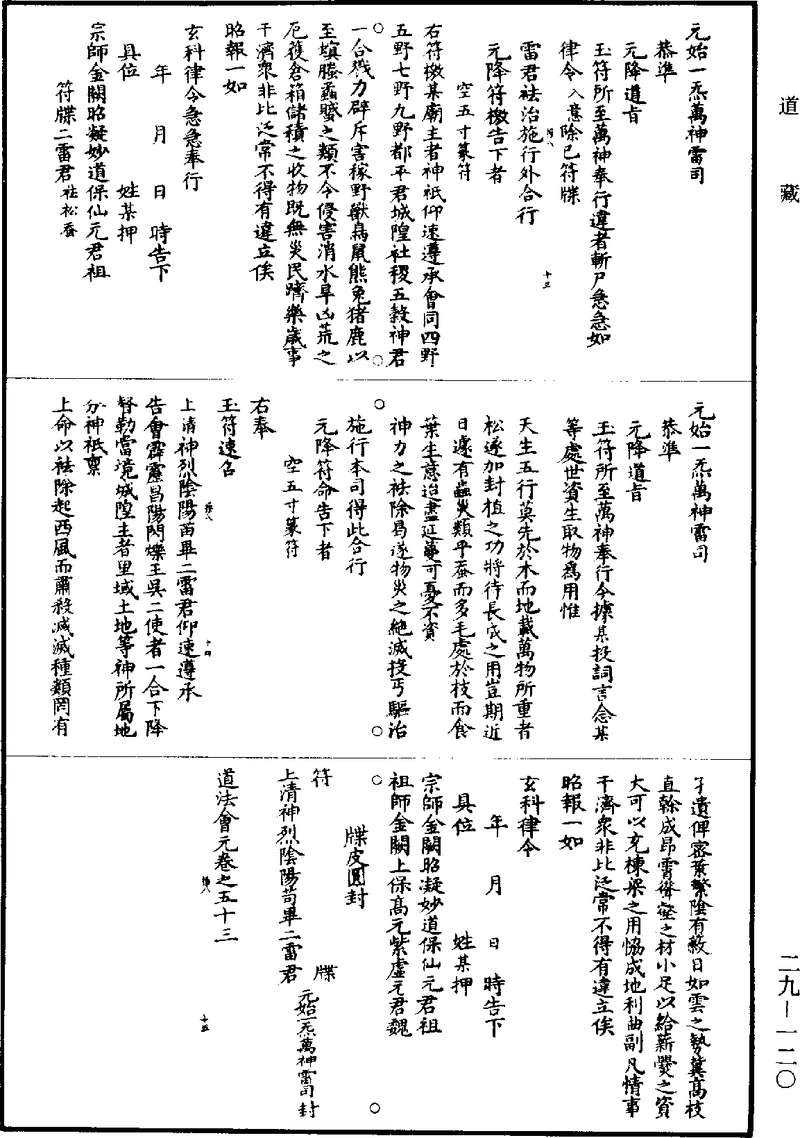 道藏
元始一炁萬神雷司
恭準
元降道旨
玉符所至萬神奉行違者斬尸急急如
律令入意除已符牒
雷君祛治施行外合行
元降符檄告下者
空五寸篆符
右符檄某廟主者神祇仰速遵承會同四野
五野七野九野都平君城隍社稷五穀神君
一合戮力辟斥害稼野獸鳥鼠熊兔猪鹿以
至螟螣蟊賊之類不令侵害消水旱凶荒之
厄獲倉箱儲積之收物既無災民躋樂歲事
干濟衆非比泛常不得有違立俟
昭報一如
玄科律令急急奉行
年 月 日 時告下
具位 姓某押
宗師金闕昭凝妙道保仙元君祖
符牒二雷君祛松蚕
元始一炁萬神雷司
恭準
元降道旨
玉符所至萬神奉行今據某投詞言念某
等處世資生取物為用惟
天生五行莫先於木而地載萬物所重者
松遂加封植之功將待長成之用豈期近
日遽有蟲災類乎蚕而多毛處於枝而食
葉生意迨盡延蔓可憂不資
神力之祛除曷遂物災之絶滅投丐驅治
施行本司得此合行
元降符命告下者
空五寸篆符
右奉
玉符速召
上清神烈陰陽苗畢二雷君仰速遵承
告會霹靂昌陽閃爍王吳二使者一合下降
督勒當境城隍主者里域土地等神所屬地
分神祇禀
上命以祛除起西風而肅殺滅滅種類罔有
孑遺俾密葉繁陰有敝日如雲之勢冀高枝
直榦成昂霄聳壑之材小足以給薪爨之資
大可以充棟梁之用協成地利曲副凡情事
干濟衆非比泛常不得有違立俟
昭報一如
玄科律令
年 月 日 時告下
具位 姓某押
宗師金闕昭凝妙道保仙元君祖
祖師金闕上保高元紫虛元君魏
牒皮圓封
符 牒
上清神烈陰陽苟畢二雷君 元始一炁萬神雷司封
道法會元卷之五十三
二九—一二〇